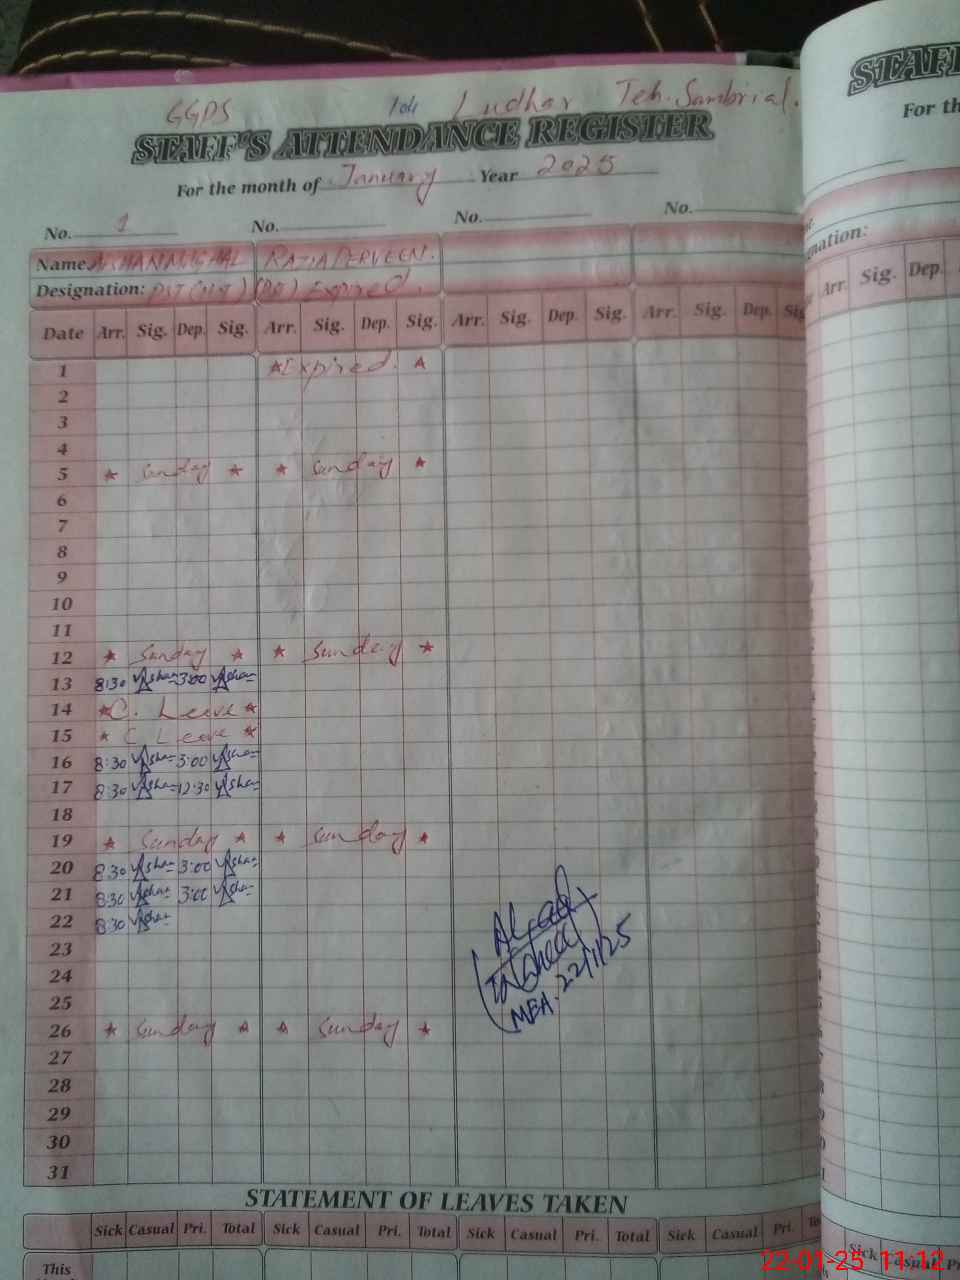 GGPS 104 Ludhar Teh. Sambrial.
STAFF'S ATTENDANCE REGISTER
For the month of January Year 2025
No. 1 No. No. No.
Name RAZIA PERVEEN.
Designation: PST Expired.
Date Arr. Sig. Dep. Sig. Arr. Sig. Dep. Sig. Arr. Sig. Dep. Sig. Arr. Sig. Dep. Sig
1 ★ Expired. ★
2
3
4
5 ★ Sunday ★ ★ Sunday ★
6
7
8
9
10
11
12 ★ Sunday ★ ★ Sunday ★
13 8:30 3:00
14 ★ C. Leave ★
15 ★ C Leave ★
16 8:30 3:00
17 8:30 12:30
18
19 ★ Sunday ★ ★ Sunday ★
20 8:30 3:00
21 8:30 3:00
22 8:30
23
24
25
26 ★ Sunday ★ ★ Sunday ★
27
28
29
30
31
MEA. 22/1/25
STATEMENT OF LEAVES TAKEN
Sick Casual Pri. Total Sick Casual Pri. Total Sick Casual Pri. Total Sick Casual Pri.
This
STAF
For th
nation:
Arr. Sig. Dep.
Sick Casual
22-01-25 11:12